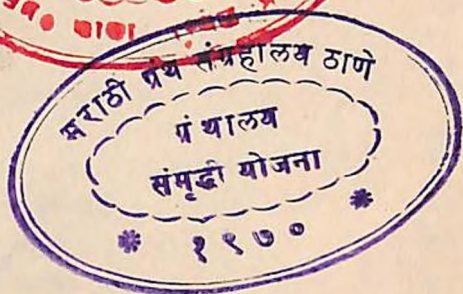 मराठी ग्रंथ संग्रहालय ठाणे
ग्रंथालय
संमृद्धी योजना
* १९७० *